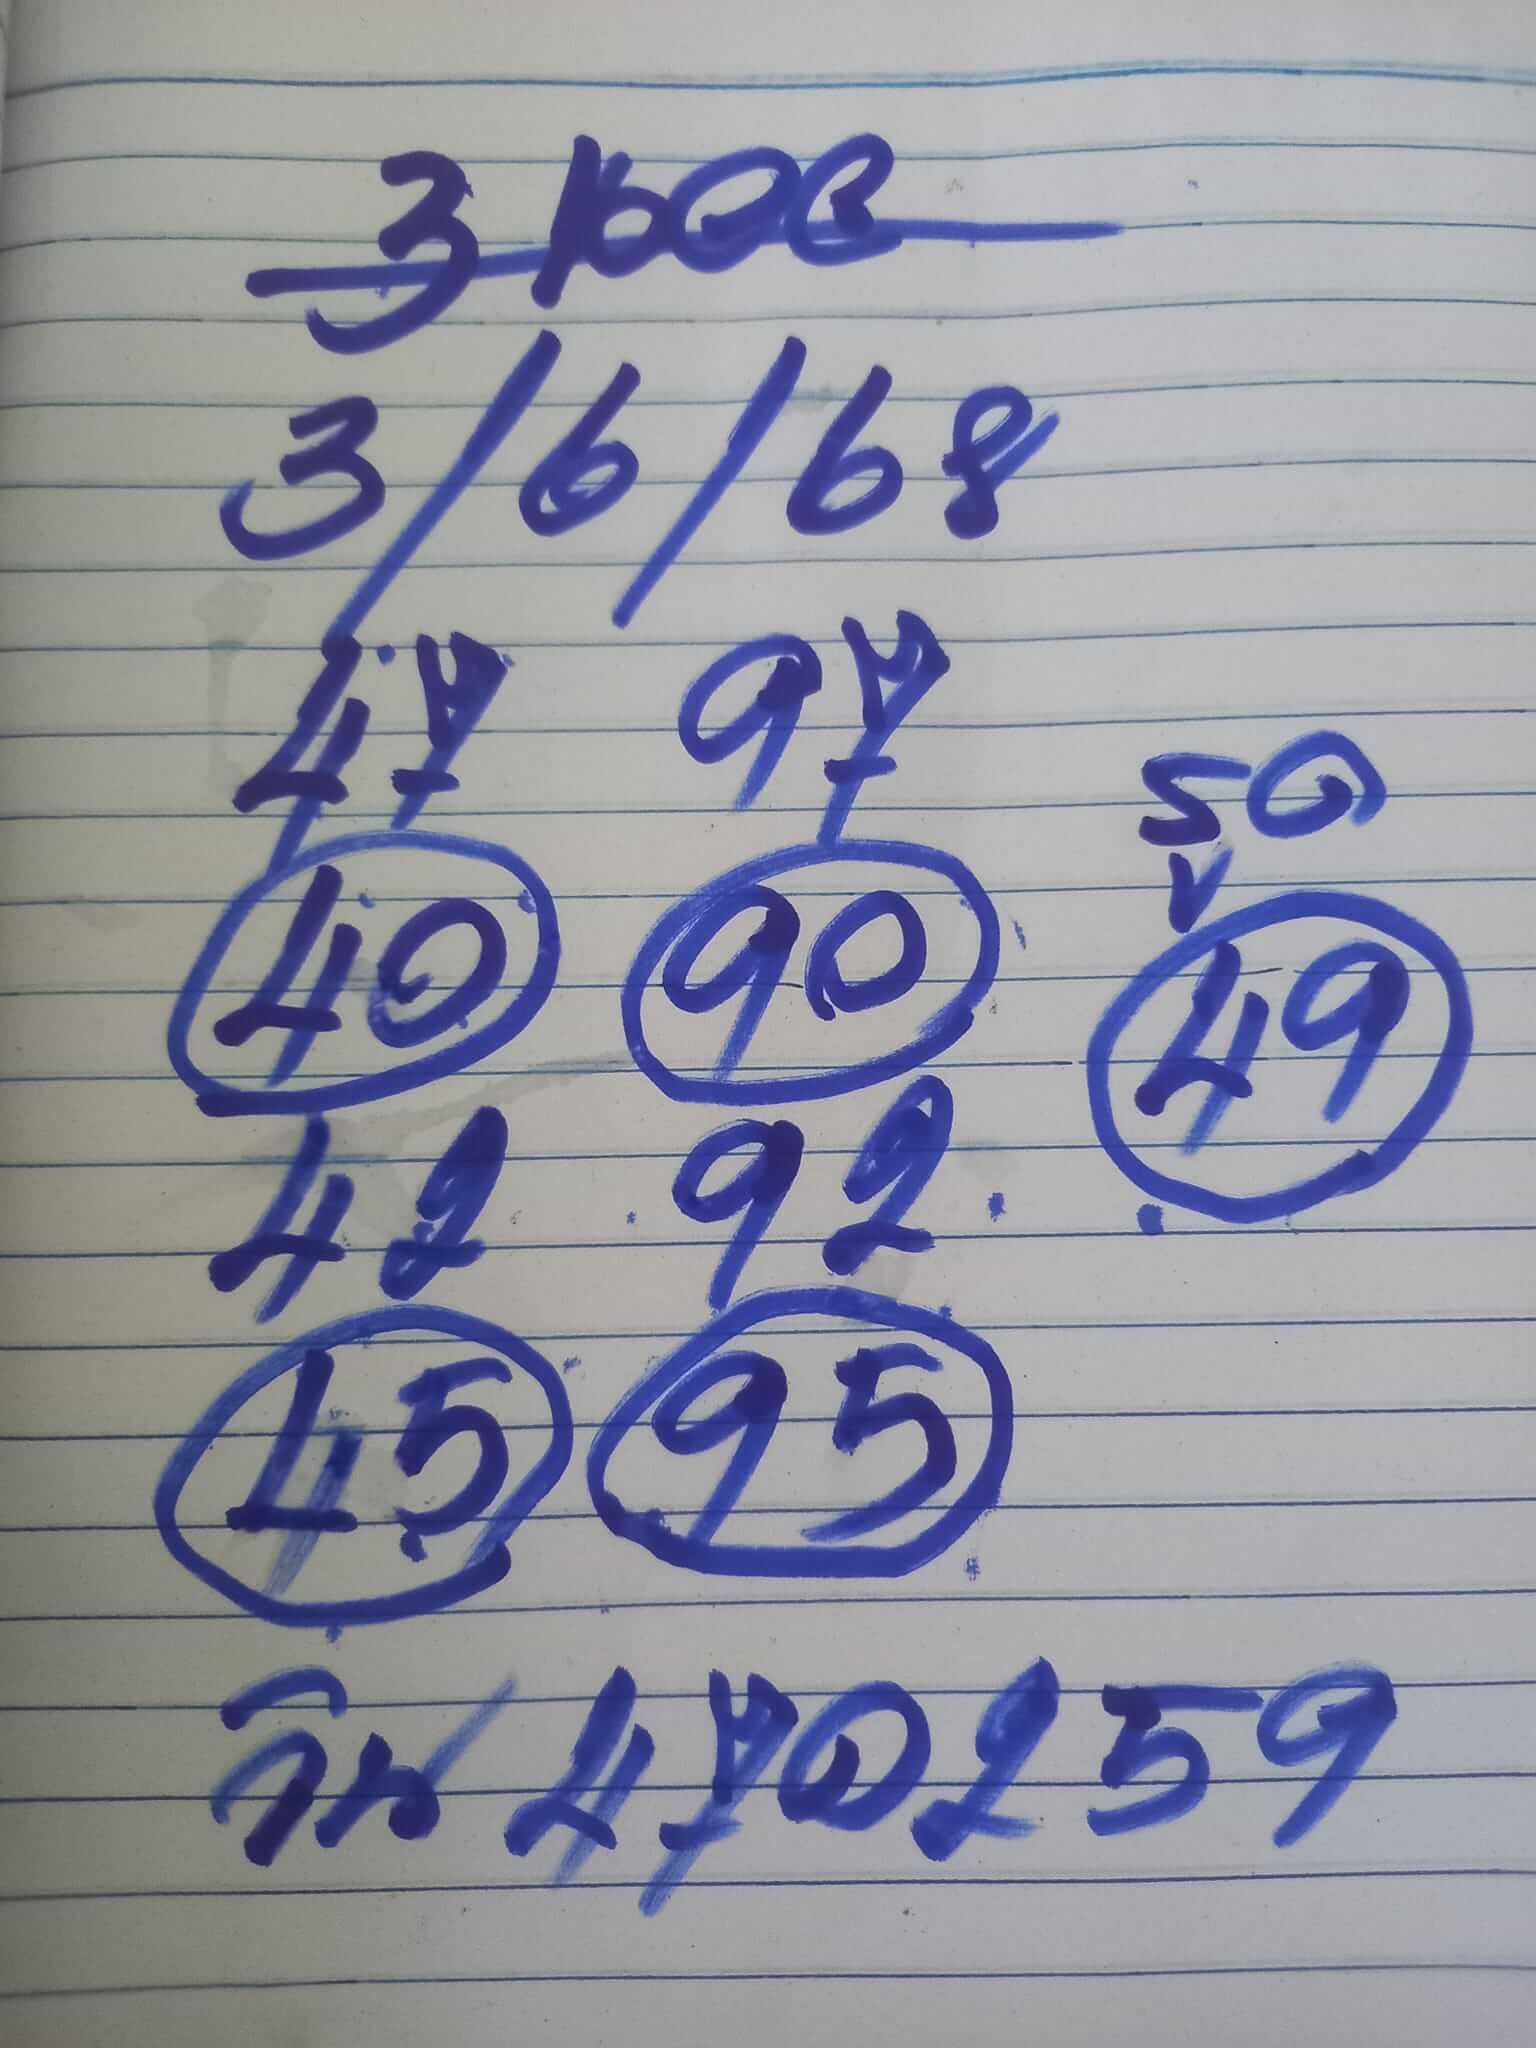 3/6/68
47 97
รูด
40 90
49
42 92
45 95
วิน 470259